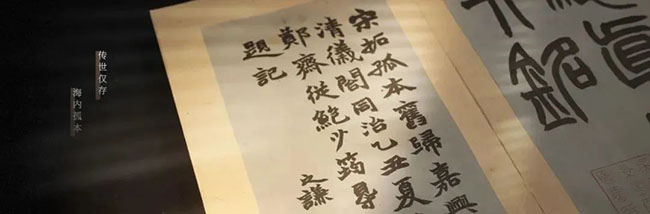 宋拓孤本舊歸嘉興
清儀閣同治乙丑夏
鄭齋從鮑少筠尋
題記
之謙
传世仅存
海内孤本